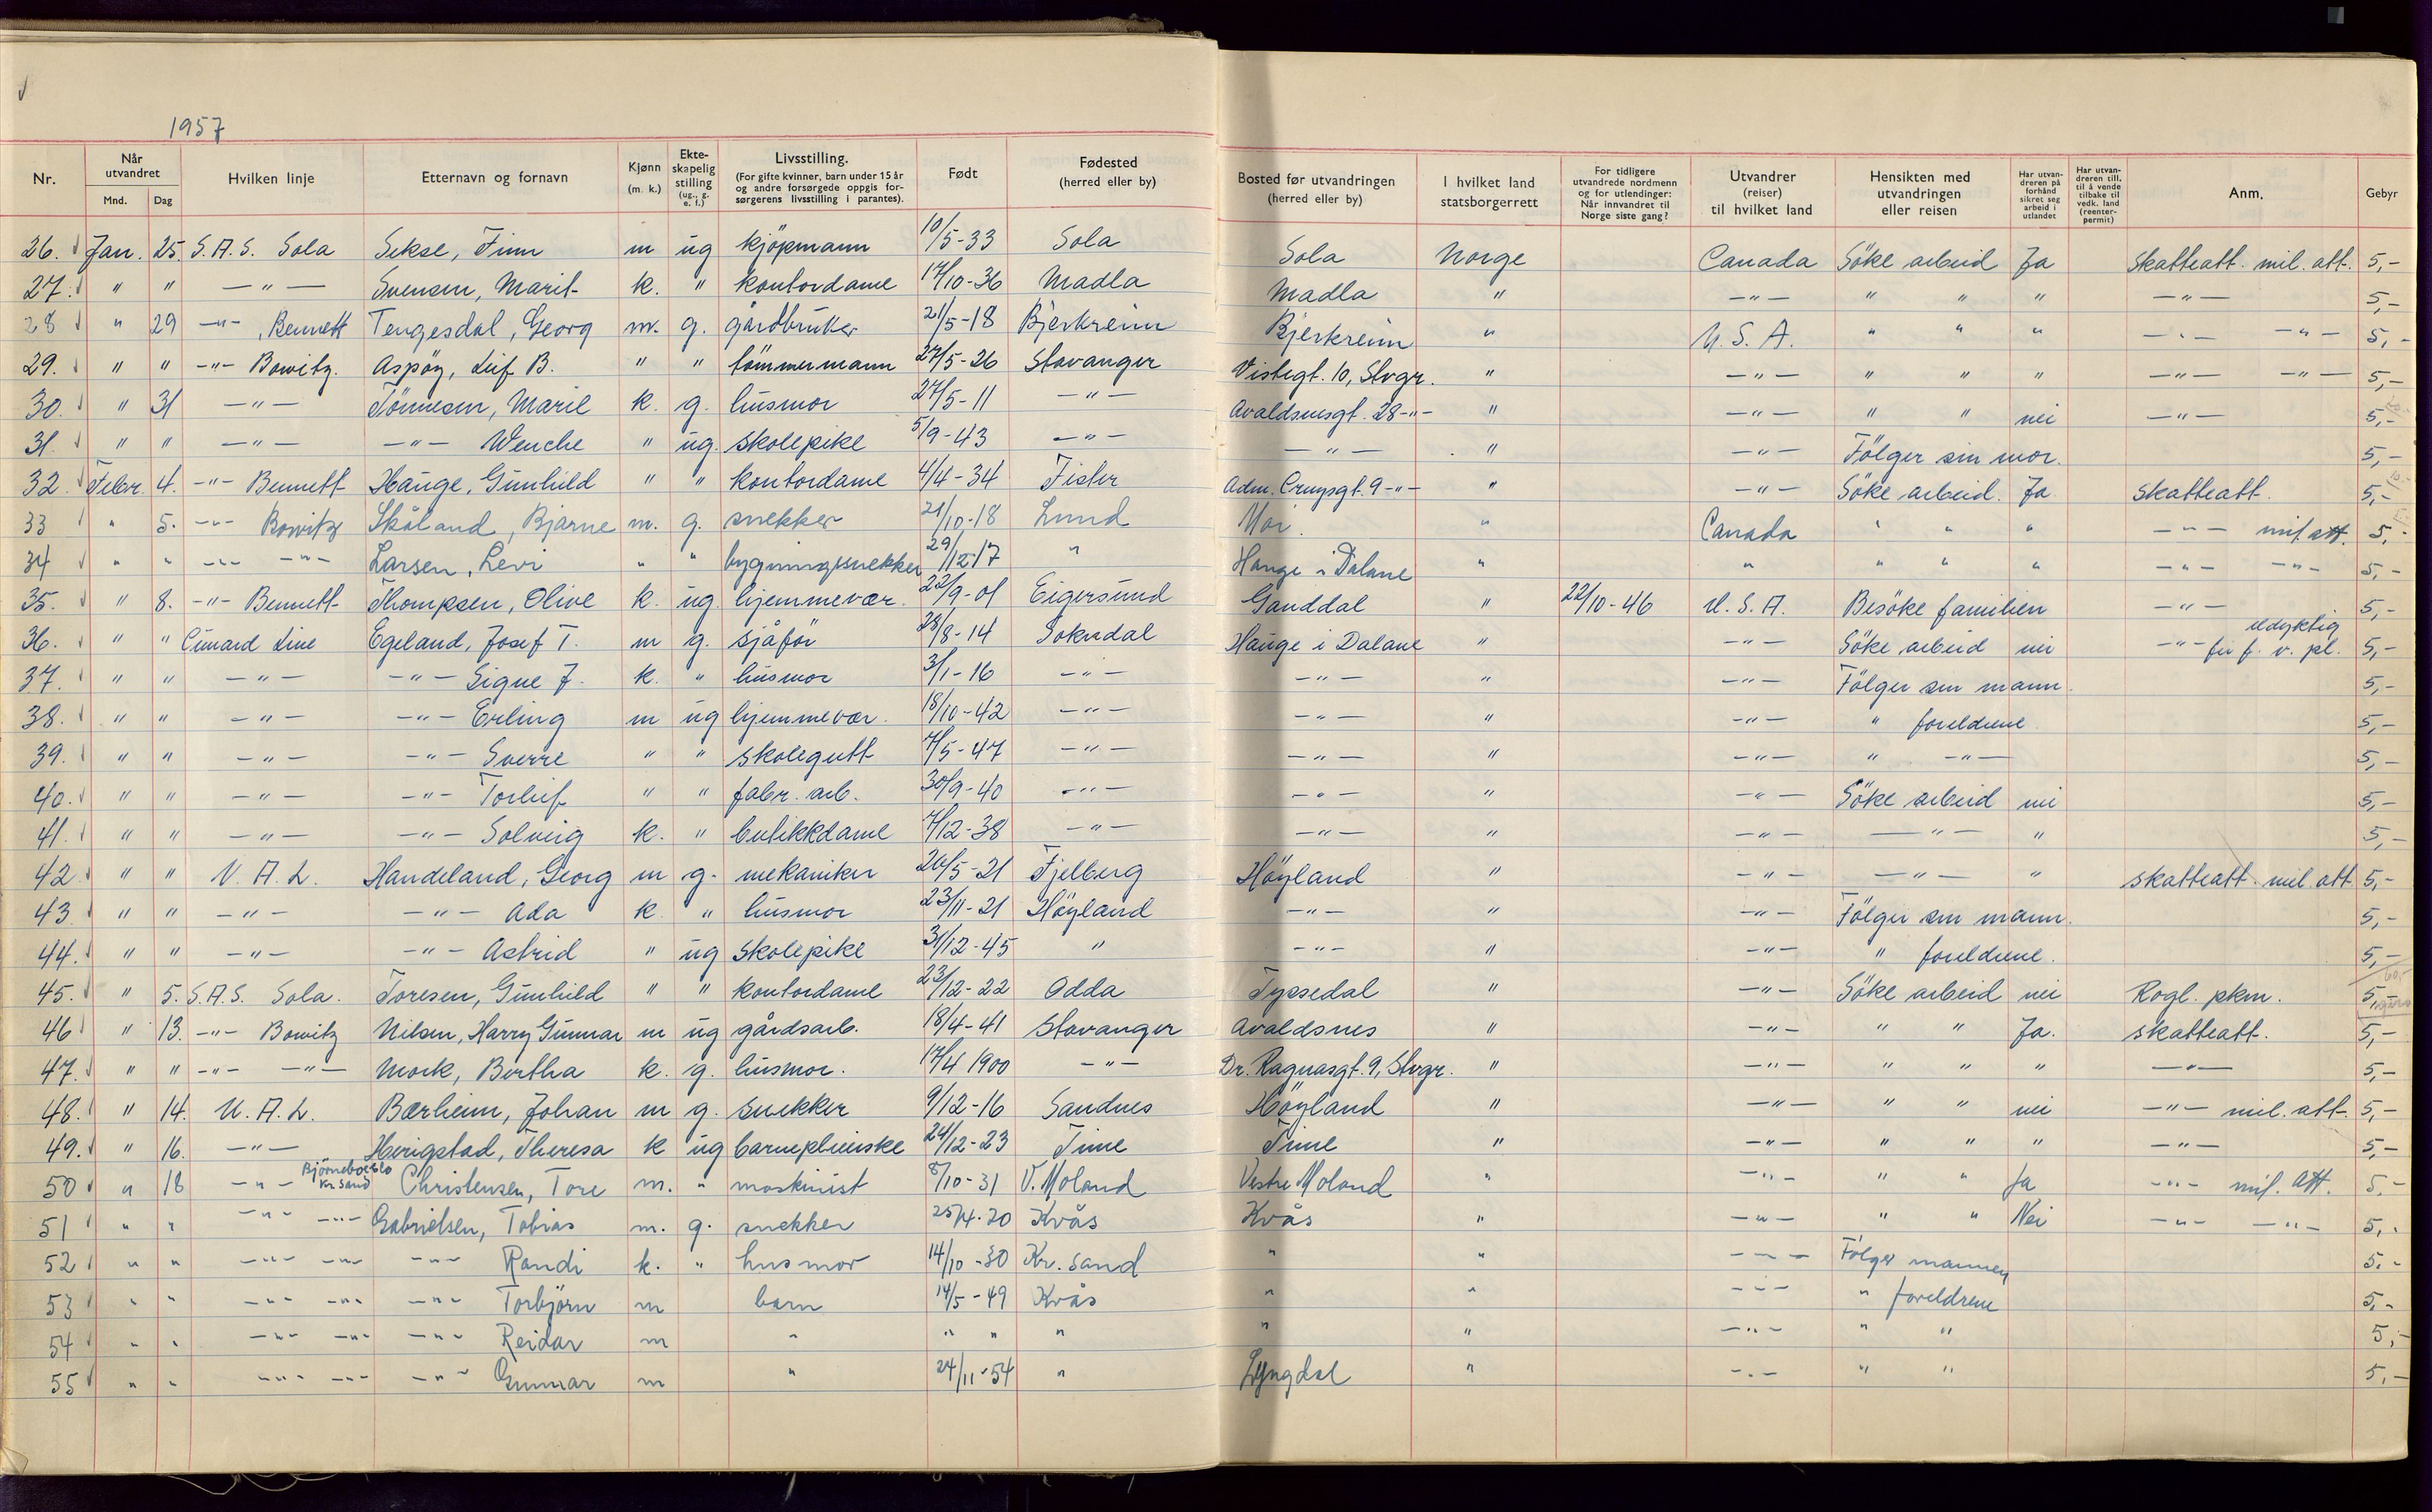 1957
Nr. Når utvandret Mnd. Dag Hvilken linje Etternavn og fornavn Kjønn (m. k.) Ekteskapelig stilling (ug., g. e. f.) Livsstilling. (For gifte kvinner, barn under 15 år og andre forsørgede oppgis forsørgerens livsstilling i parantes). Født Fødested (herred eller by) Bosted før utvandringen (herred eller by) I hvilket land statsborgerrett For tidligere utvandrede nordmenn og for utlendinger: Når innvandret til Norge siste gang? Utvandrer (reiser) til hvilket land Hensikten med utvandringen eller reisen Har utvandreren på forhånd sikret seg arbeid i utlandet Har utvandreren till. til å vende tilbake til vedk. land (reenterpermit) Anm. Gebyr
26. Jan. 25. S.A.S. Sola Sekse, Finn m ug kjöpmann 10/5-33 Sola Sola Norge Canada Söke arbeid Ja Skatteatt. mil. att. 5,-
27. " " -"- Svensen, Marit k. " kontordame 17/10-36 Madla Madla " -"- " " " -"- 5,-
28 " 29 -"- Bennett Tengesdal, Georg m. g. gårdbruker 21/5-18 Bjerkreim Bjerkreim " U.S.A. " " " -"- -"- 5,-
29. " " -"- Bowitz. Aspöy, Leif B. " " tömmermann 27/5-26 Stavanger Vistegt. 10, Stvgr. " -"- " " " -"- -"- 5,-
30. " 31 -"- Tönnesen, Marie k. g. husmor 27/5-11 -"- Avaldsnesgt. 28 -"- " -"- " " nei -"- 5,-
31. " " -"- -"- Wenche " ug. skolepike 5/9-43 -"- -"- " -"- Fölger sin mor. 5,-
32. Febr. 4. -"- Bennett Hauge, Gunhild " " kontordame 4/4-34 Fister Adm. Cruysgt. 9 -"- " -"- Söke arbeid. Ja Skatteatt. 5,-
33 " 5. -"- Bowitz Skåland, Bjarne m. g. snekker 21/10-18 Lund Moi. " Canada " " " -"- mil. att. 5,-
34 " " -"- -"- Larsen, Levi " " bygningssnekker 29/12-17 " Hauge i Dalane " " " " " -"- -"- 5,-
35. " 8. -"- Bennett Thompsen, Olive k. ug. hjemmevær. 22/9-01 Eigersund Ganddal " 22/10-46 U.S.A. Besöke familien -"- 5,-
36. " " Cunard Line Egeland, Josef T. m g. sjåför 28/8-14 Sokndal Hauge i Dalane " -"- Söke arbeid nei -"- udyktig for f. v. pl. 5,-
37. " " -"- -"- Signe J. k. " husmor 3/1-16 -"- -"- " -"- Fölger sin mann. 5,-
38. " " -"- -"- Erling m ug hjemmevær. 18/10-42 -"- -"- " -"- " foreldrene 5,-
39. " " -"- -"- Sverre " " skolegutt 7/5-47 -"- -"- " -"- " -"- 5,-
40. " " -"- -"- Torleif " " fabr. arb. 30/9-40 -"- -"- " -"- Söke arbeid nei 5,-
41. " " -"- -"- Solveig k. " butikkdame 7/12-38 -"- -"- " -"- -"- " 5,-
42. " " N.A.L. Handeland, Georg m g. mekaniker 20/5-21 Fjelberg Höyland " -"- -"- " skatteatt. mil. att. 5,-
43. " " -"- -"- Ada k " husmor 23/11-21 Höyland -"- " -"- Fölger sin mann. 5,-
44. " " -"- -"- Astrid " ug skolepike 31/12-45 " -"- " -"- " foreldrene. 5,-
45. " 5. S.A.S. Sola. Toresen, Gunhild " " kontordame 23/12-22 Odda Tyssedal " -"- Söke arbeid nei Rogl. pkm. 5,-
46 " 13. -"- Bowitz Nilsen, Harry Gunnar m ug gårdsarb. 18/4-41 Stavanger Avaldsnes " -"- " " Ja. skatteatt. 5,-
47. " " -"- -"- Mork, Bertha k. g. husmor. 17/4 1900 -"- Dr. Ragnasgt. 9, Stvgr. " -"- " " " -"- 5,-
48. " 14. N.A.L. Bærheim, Johan m g. snekker 9/12-16 Sandnes Höyland " -"- " " nei -"- mil. att. 5,-
49. " 16. -"- Herigstad, Theresa k ug barnepleierske 24/12-23 Time Time " -"- " " " -"- 5,-
50 " 18 -"- Kr. Sand Christensen, Tore m. " maskinist 8/10-31 V. Moland Vestre Moland " -"- " " Ja -"- mil. att. 5,-
51 " " -"- -"- Gabrielsen, Tobias m. g. snekker 25/4-20 Kvås Kvås " -"- " " Nei -"- -"- 5,-
52 " " -"- -"- -"- Randi k. " husmor 14/10-30 Kr. Sand " " -"- Fölger mannen 5,-
53 " " -"- -"- -"- Torbjörn m barn 14/5-49 Kvås " " -"- " foreldrene 5,-
54 " " -"- -"- -"- Reidar m " " " " " " -"- " " 5,-
55 " " -"- -"- -"- Gunnar m " 24/11-54 " Lyngdal " -"- " " 5,-